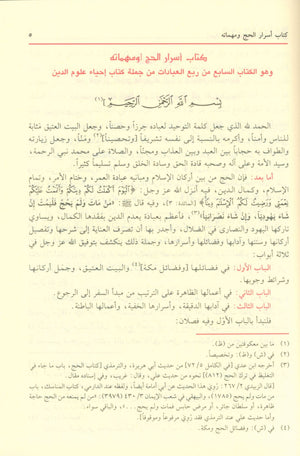 كتاب أسرار الحج ومهماته ٥
كتاب أسرار الحج [ومهماته
وهو الكتاب السابع من ربع العبادات من جملة كتاب إحياء علوم الدين
بسم الله الرحمن الرحيم](١)
الحمد لله الذي جعل كلمة التوحيد لعباده حرزاً وحصناً، وجعل البيت العتيق مثابة
للناس وأمناً، وأكرمه بالنسبة إلى نفسه تشريفاً [وتحصيناً](٢) ومَنّاً، وجعل زيارته
والطواف به حجاباً بين العبد وبين العذاب ومجنّاً، والصلاة على محمد نبي الرحمة،
وسيد الأمة وعلى آله وصحبه قادة الحق وسادة الخلق وسلم تسليماً كثيراً.
أما بعد: فإن الحج من بين أركان الإسلام ومبانيه عبادة العمر، وختام الأمر، وتمام
الإسلام، وكمال الدين، فيه أنزل الله عز وجل: ﴿الْيَوْمَ أَكْمَلْتُ لَكُمْ دِينَكُمْ وَأَتْمَمْتُ عَلَيْكُمْ
نِعْمَتِي وَرَضِيتُ لَكُمُ الْإِسْلَامَ دِينًا﴾ [المائدة: ٣]، وفيه قال ﷺ: «مَن مَاتَ ولَم يَحُجّ فَليَمُتْ إنْ
شَاءَ يَهُودِيّاً، وإنْ شاءَ نَصْرَانِيّاً»(٣)، فأعظم بعبادة يعدم الدين بفقدها الكمال، ويساوي
تاركها اليهود والنصارى في الضلال، وأجدر بها أن تصرف العناية إلى شرحها وتفصيل
أركانها وسننها وآدابها وفضائلها وأسرارها، وجملة ذلك ينكشف بتوفيق الله عز وجل في
ثلاثة أبواب:
الباب الأول: في فضائلها [وفضائل مكة](٤) والبيت العتيق، وجمل أركانها
وشرائط وجوبها.
الباب الثاني: في أعمالها الظاهرة على الترتيب من مبدأ السفر إلى الرجوع.
الباب الثالث: في آدابها الدقيقة، وأسرارها الخفية، وأعمالها الباطنة.
فلنبدأ بالباب الأول وفيه فصلان:
(١) ما بين معكوفتين من (ظ).
(٢) في (ش) و(ظ): وتخصيصاً.
(٣) أخرجه ابن عدي [في الكامل ٧٢/٥] من حديث أبي هريرة، والترمذي [كتاب الحج، باب ما جاء في
التغليظ في ترك الحج (٨١٢)] نحوه من حديث علي، وقال: غريب، وفي إسناده مقال.
قال الزبيدي ٢٦٧/٤: رُوِيَ هذا الحديث عن أبي أمامة أيضاً، ولفظه عند الدارمي، كتاب المناسك، باب
من مات ولم يحج (١٧٨٥)، والبيهقي في شعب الإيمان ٤٣٠/٣ (٣٩٧٩): «من لم يمنعه من الحج حاجة
ظاهرة، أو سلطان جائر، أو مرض حابس فمات ولم يحج ...»، والباقي سواء.
وأما حديث علي عند الترمذي فقد رُوِيَ مرفوعاً وموقوفاً.
(٤) في (ش): وفضائل الحج ومكة.